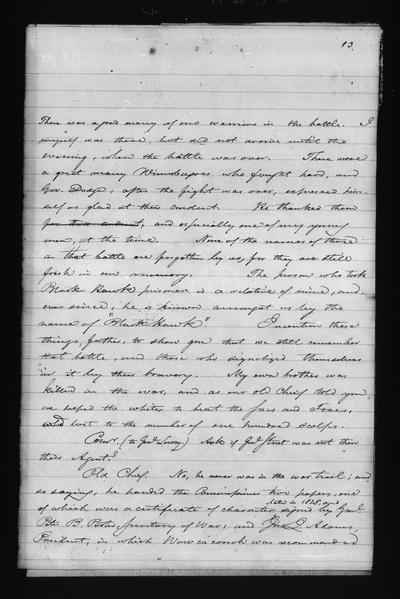 13.
There was a good many of our warriors in the battle. I
myself was there, but did not arrive until the
evening, when the battle was over. There were
a great many Winnebagoes who fought hard, and
Gov. Dodge, after the fight was over, expressed him-
self as glad at their conduct. He thanked them
for their conduct, and especially one of very young
men, at the time. None of the names of those
in that battle are forgotten by us, for they are still
fresh in our memory. The person who took
Black Hawk prisoner is a relative of mine, and,
ever since, he is known amongst us by the
name of "Black Hawk." I mention these
things, father, to show you that we still remember
that battle, and those who signalized themselves
in it by their bravery. My own brother was
killed in the war, and as our old Chief told you,
we helped the whites to beat the Sacs and Foxes,
and lost to the number of one hundred scalps.
Com'r. (to Gov. Lowry) Ask if Gen'l Street was not then
their Agent?
Old Chief. No, he never was in the war trail; and,
so saying, he handed the Commissioners two papers, one
dated in 1828, and
of which was a certificate of character signed by Gen'l
Peter B. Porter, Secretary of War; and Jno. Q. Adams,
President, in which was recommended